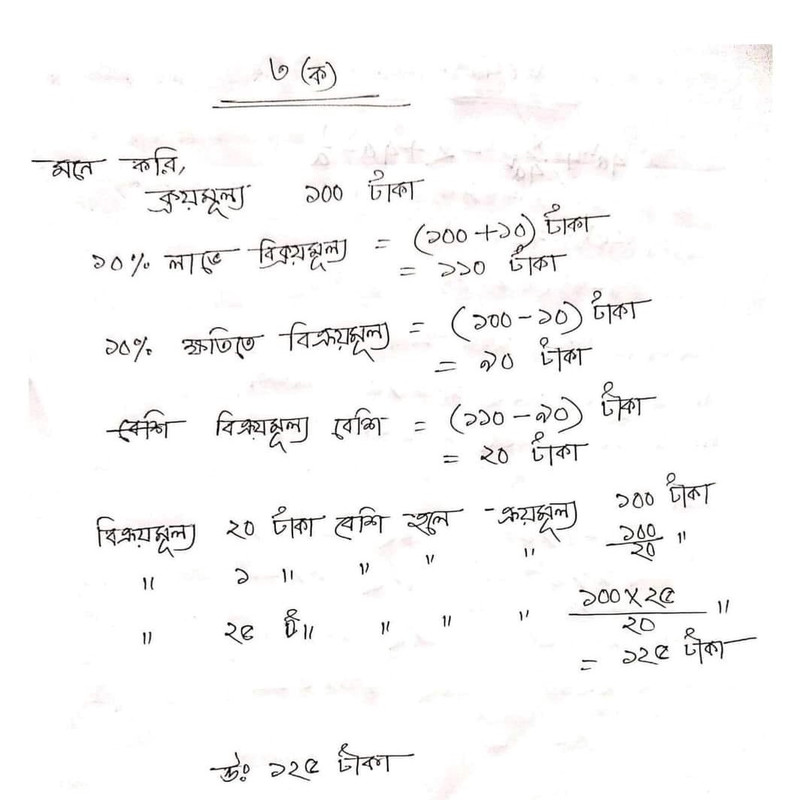 ৩ (ক)
মনে করি,
ক্রয়মূল্য ১০০ টাকা
১০% লাভে বিক্রয়মূল্য = (১০০ + ১০) টাকা
= ১১০ টাকা
১০% ক্ষতিতে বিক্রয়মূল্য = (১০০ - ১০) টাকা
= ৯০ টাকা
বেশি বিক্রয়মূল্য বেশি = (১১০ - ৯০) টাকা
= ২০ টাকা
বিক্রয়মূল্য ২০ টাকা বেশি হলে ক্রয়মূল্য ১০০ টাকা
" ১ " " " " ১০০/২০ "
" ২৫ " " " " ১০০ × ২৫/২০ "
= ১২৫ টাকা
উঃ ১২৫ টাকা